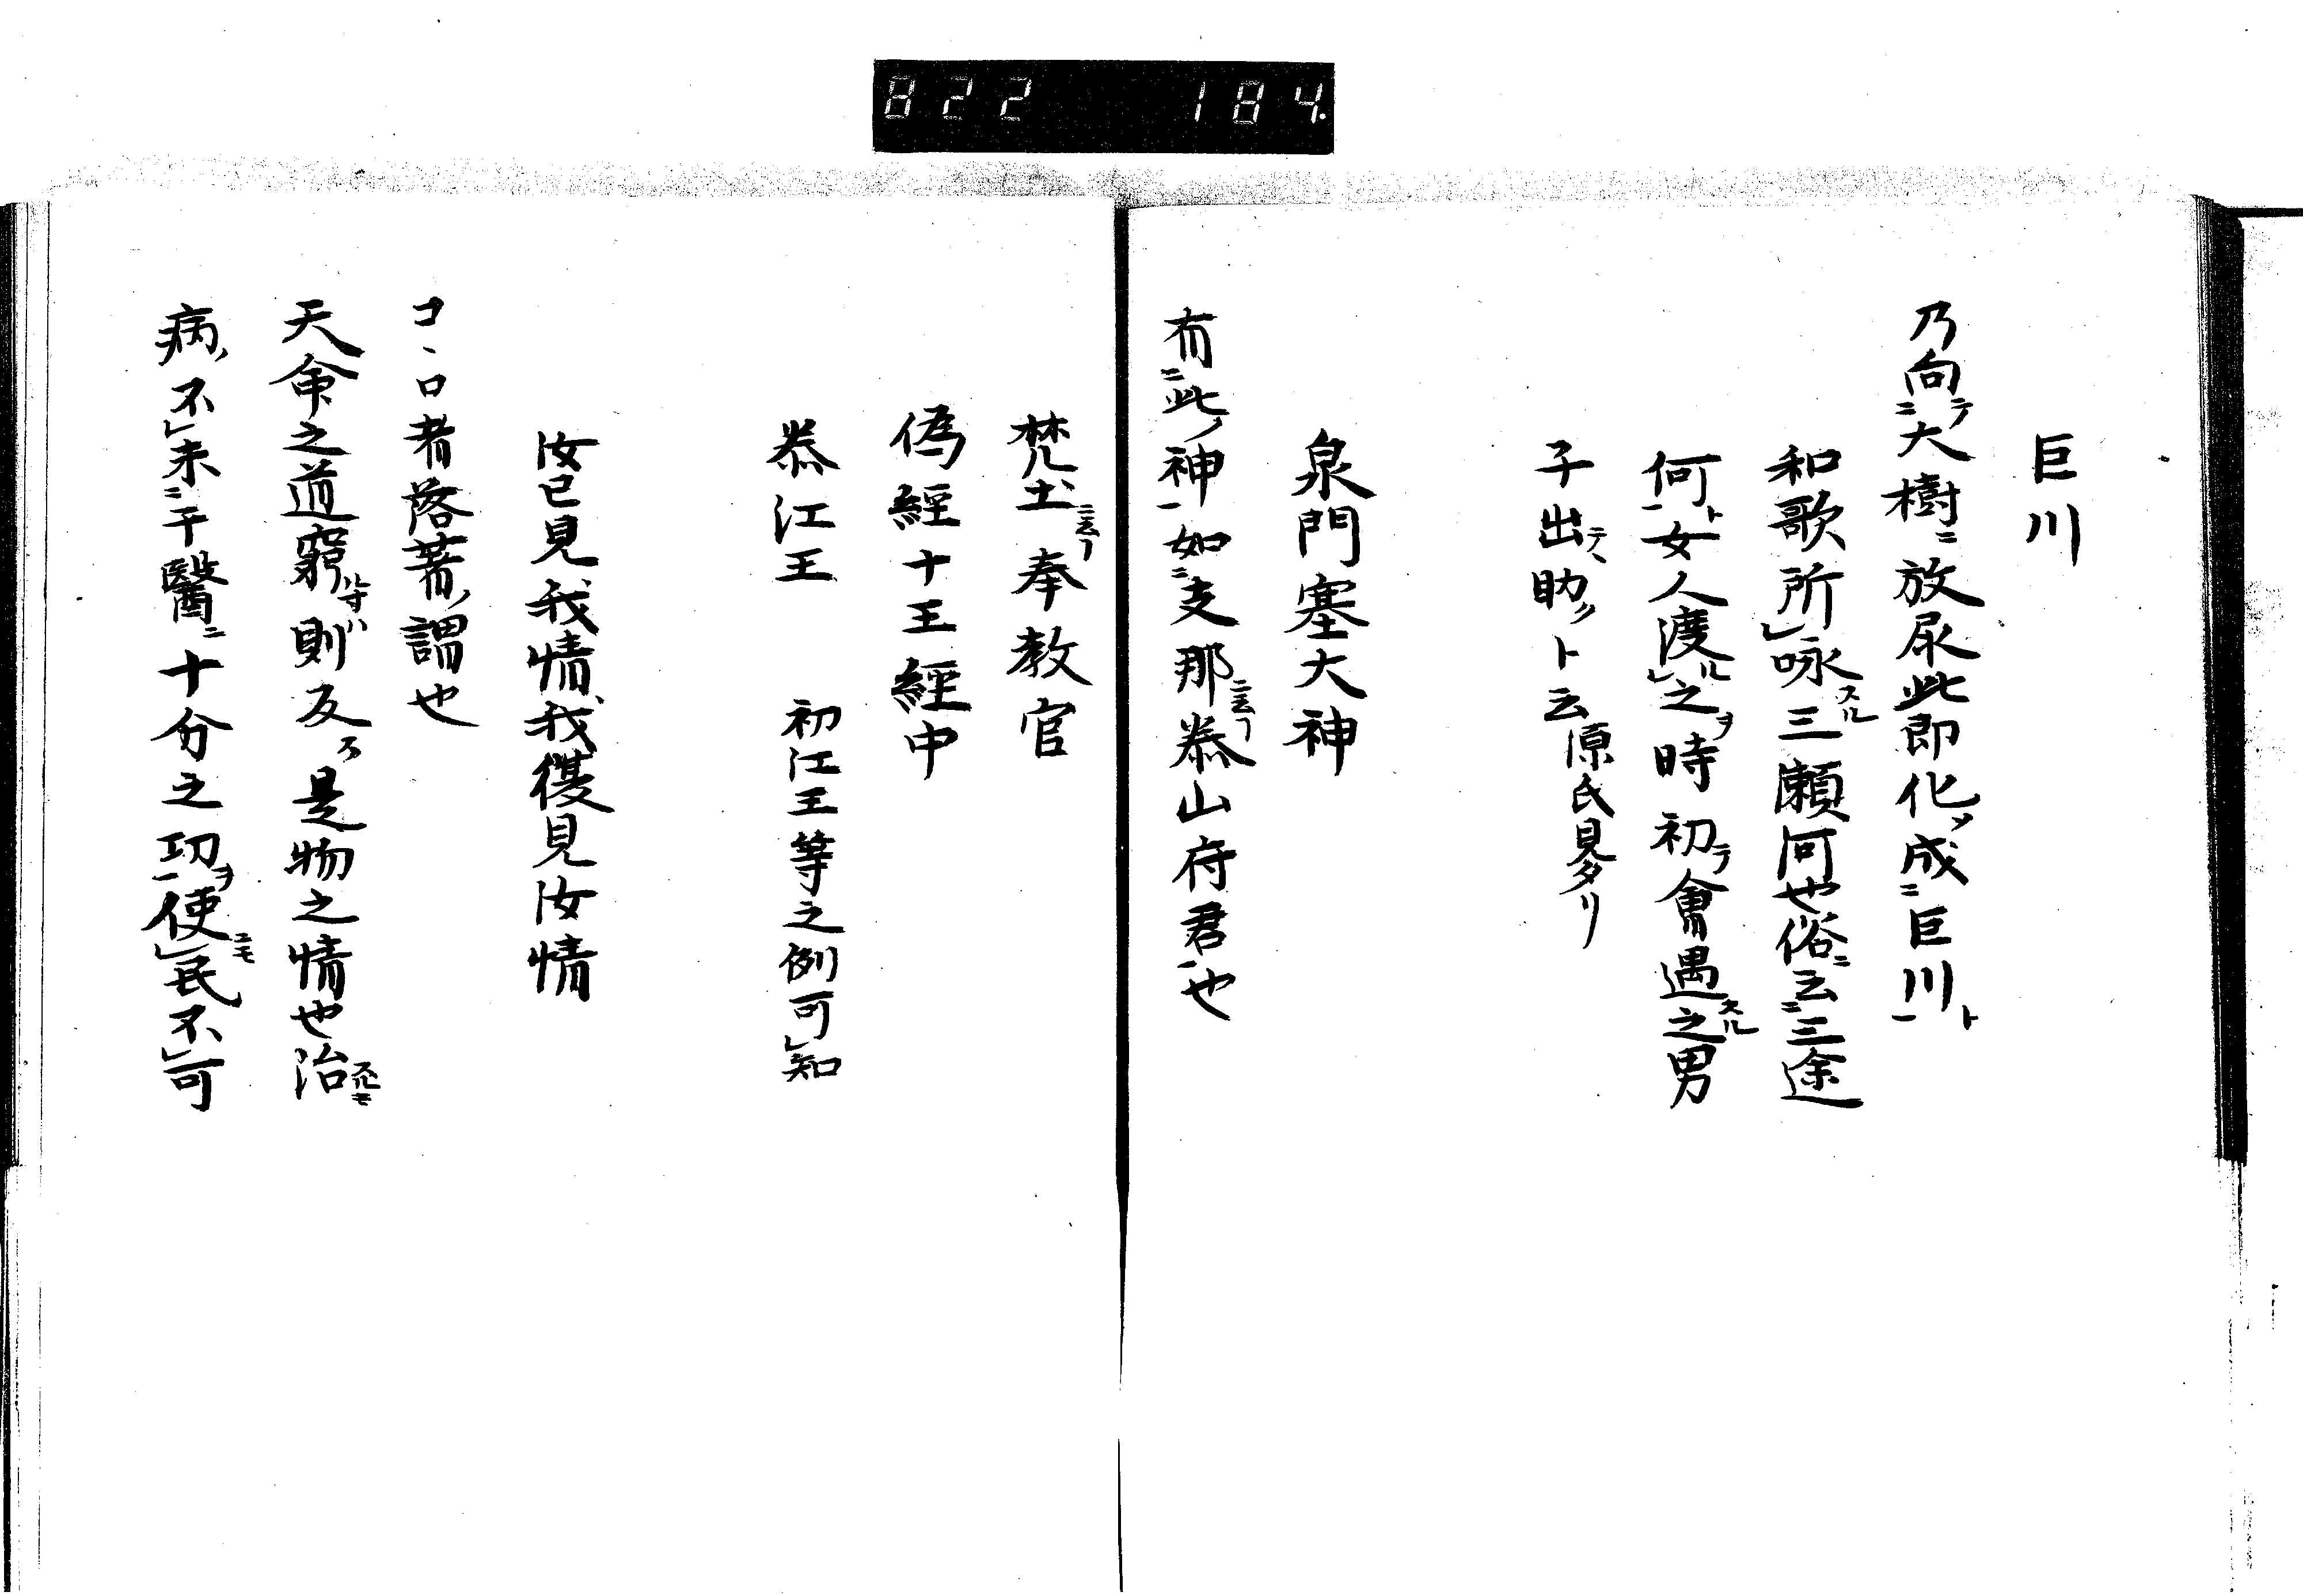 822 184.
巨川
乃向テ二大樹ニ放尿此即化ノ成二巨川ト一
和歌所レ咏スル三瀬河也俗ニ云二三途
何ト一女人渡ルレ之ヲ時初テ會遇スル之男
子出テヽ助クト云源氏見タリ
泉門塞大神
有二此ノ神一如二支那ニ云フ泰山府君一也
梵土ニ云フ奉教官
偽經十王經中
泰江王 初江王等之例可レ知
汝已見我情、我復見汝情
コヽロ者落著ノ謂也
天命之道窮ル寸ハ則反ル是物之情也治スルニモ
病ノ不レ求二于醫ニ十分之功ヲ一使ニモレ民不レ可